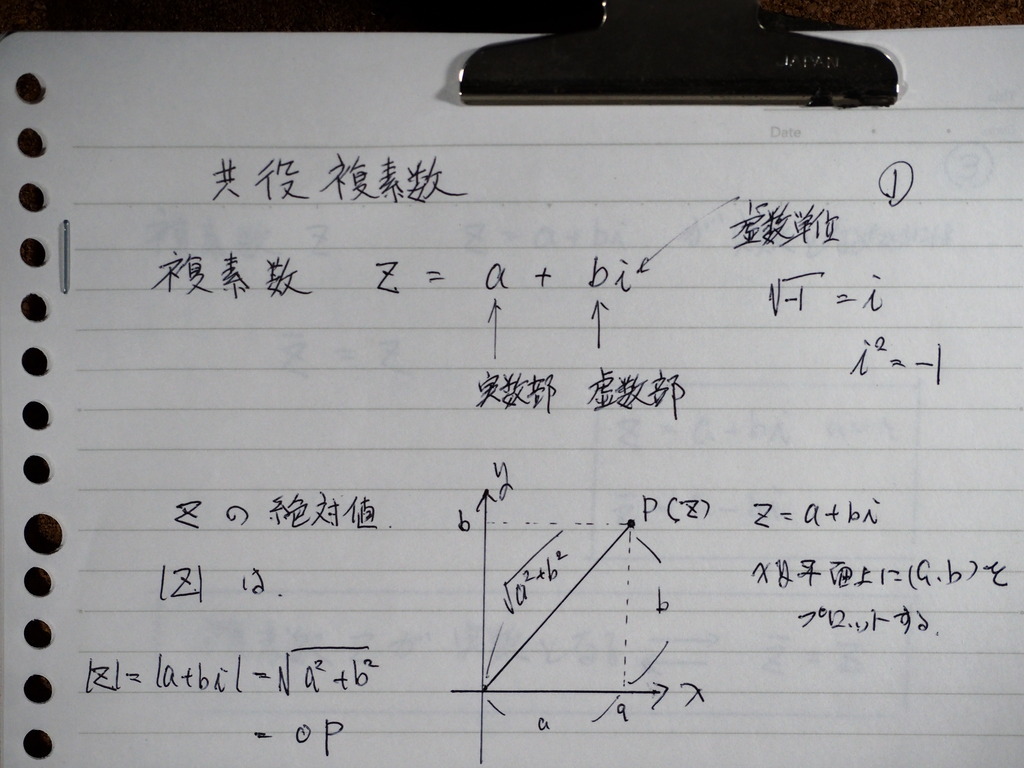 JAPAN
Date
共役複素数
①
虚数単位
複素数 Z = a + bi
√-1 = i
i² = -1
実数部 虚数部
y
Zの絶対値.
b
P(Z)
Z = a + bi
√a²+b²
|Z| は.
b
xy平面上に(a,b)を
プロットする.
|Z| = |a+bi| = √a²+b²
= OP
a
a
x